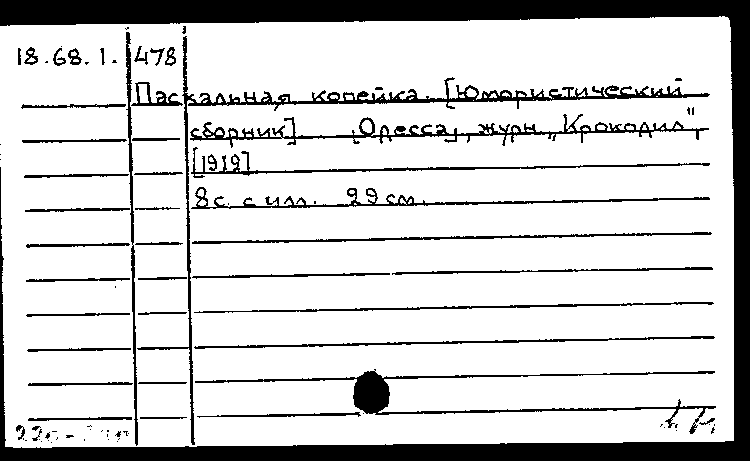 18.68.1. 478
Пасхальная копейка. [Юмористический
сборник]. [Одесса], журн. „Крокодил",
[1912]
8 с. с илл. 29 см.